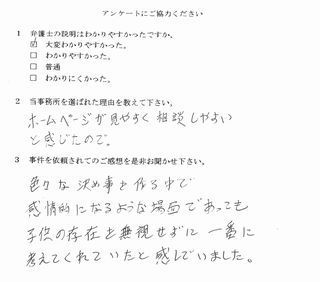 アンケートにご協力ください
1 弁護士の説明はわかりやすかったですか。
☑ 大変わかりやすかった。
□ わかりやすかった。
□ 普通
□ わかりにくかった。
2 当事務所を選ばれた理由を教えて下さい。
ホームページが見やすく相談しやすい
と感じたので。
3 事件を依頼されてのご感想を是非お聞かせ下さい。
色々な決め事を作る中で
感情的になるような場面であっても
子供の存在を無視せずに一番に
考えてくれていたと感じていました。